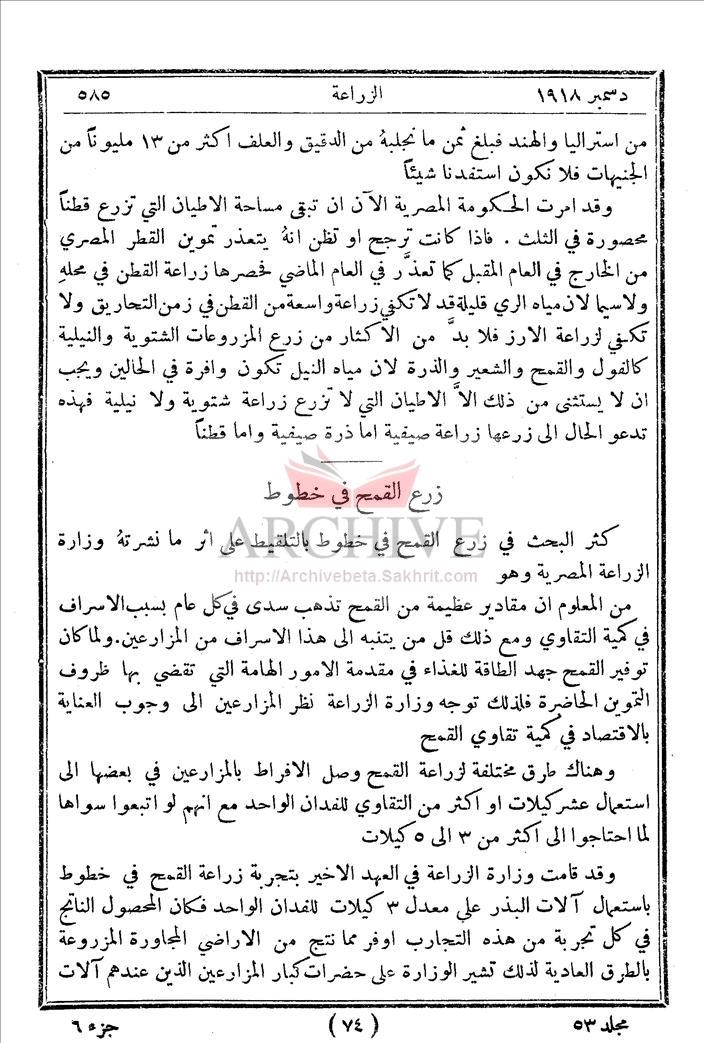 دسمبر ١٩١٨ الزراعة ٥٨٥
من استراليا والهند فبلغ ثمن ما نجلبهُ من الدقيق والعلف اكثر من ١٣ مليوناً من
الجنيهات فلا نكون استفدنا شيئاً
وقد امرت الحكومة المصرية الآن ان تبقى مساحة الاطيان التي تزرع قطناً
محصورة في الثلث . فاذا كانت ترجح او تظن انهُ يتعذر تموين القطر المصري
من الخارج في العام المقبل كما تعذَّر في العام الماضي فحصرها زراعة القطن في محلهِ
ولا سيما لان مياه الري قليلة قد لا تكفي زراعة واسعة من القطن في زمن التحاريق ولا
تكفي لزراعة الارز فلا بدَّ من الاكثار من زرع المزروعات الشتوية والنيلية
كالفول والقمح والشعير والذرة لان مياه النيل تكون وافرة في الحالين ويجب
ان لا يستثنى من ذلك الاَّ الاطيان التي لا تزرع زراعة شتوية ولا نيلية فهذه
تدعو الحال الى زرعها زراعة صيفية اما ذرة صيفية واما قطناً
زرع القمح في خطوط
ARCHIVE
كثر البحث في زرع القمح في خطوط بالتلقيط على اثر ما نشرتهُ وزارة
http://Archivebeta.Sakhrit.com
الزراعة المصرية وهو
من المعلوم ان مقادير عظيمة من القمح تذهب سدى في كل عام بسبب الاسراف
في كمية التقاوي ومع ذلك قل من يتنبه الى هذا الاسراف من المزارعين. ولما كان
توفير القمح جهد الطاقة للغذاء في مقدمة الامور الهامة التي تقضي بها ظروف
التموين الحاضرة فلذلك توجه وزارة الزراعة نظر المزارعين الى وجوب العناية
بالاقتصاد في كمية تقاوي القمح
وهناك طرق مختلفة لزراعة القمح وصل الافراط بالمزارعين في بعضها الى
استعمال عشر كيلات او اكثر من التقاوي للفدان الواحد مع انهم لو اتبعوا سواها
لما احتاجوا الى اكثر من ٣ الى ٥ كيلات
وقد قامت وزارة الزراعة في العهد الاخير بتجربة زراعة القمح في خطوط
باستعمال آلات البذر على معدل ٣ كيلات للفدان الواحد فكان المحصول الناتج
في كل تجربة من هذه التجارب اوفر مما نتج من الاراضي المجاورة المزروعة
بالطرق العادية لذلك تشير الوزارة على حضرات كبار المزارعين الذين عندهم آلات
مجلد ٥٣ (٧٤) جزء ٦